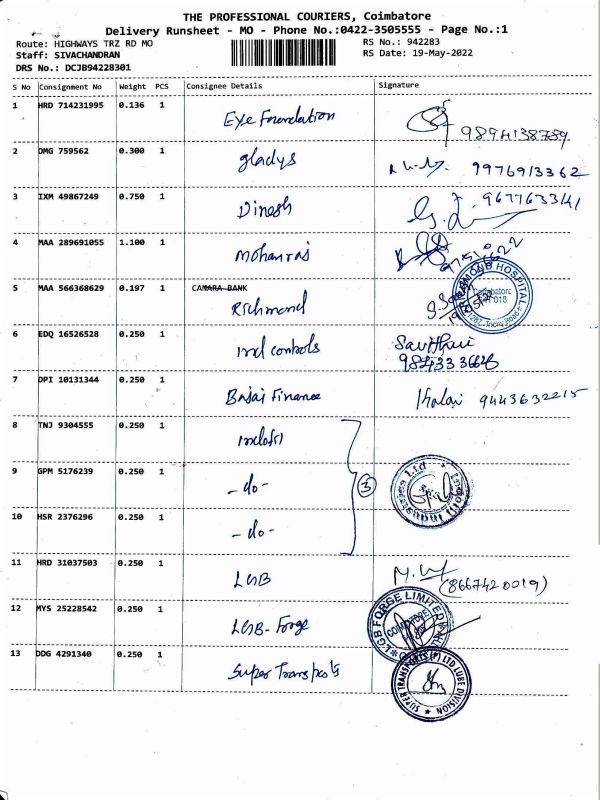 THE PROFESSIONAL COURIERS, Coimbatore
Delivery Runsheet - MO - Phone No.:0422-3505555 - Page No.:1
Route: HIGHWAYS TRZ RD MO RS No.: 942283
Staff: SIVACHANDRAN RS Date: 19-May-2022
DRS No.: DCJB94228301
S No Consignment No Weight PCS Consignee Details Signature
1 HRD 714231995 0.136 1 Eye Foundation
9894138789
2 DMG 759562 0.300 1 gladys 9976913362
3 IXM 49867249 0.750 1 Dinesh 9677633141
4 MAA 289691055 1.100 1 Mohanraj
5 MAA 566368629 0.197 1 CANARA BANK
Richmond
HOSPITAL
6 EDQ 16526528 0.250 1 ind controls
9843336626
7 DPI 10131344 0.250 1 Bajaj Finance Kalai 9443632215
8 TNJ 9304555 0.250 1
9 GPM 5176239 0.250 1 -do- 3
10 HSR 2376296 0.250 1 -do-
11 HRD 31037503 0.250 1 LGB
(8667420019)
12 MYS 25228542 0.250 1 LGB-Forge LGB FORGE LIMITED
13 DDG 4291340 0.250 1 Super Transports SUPER TRANSPORTS (P) LTD LUBE DIVISION